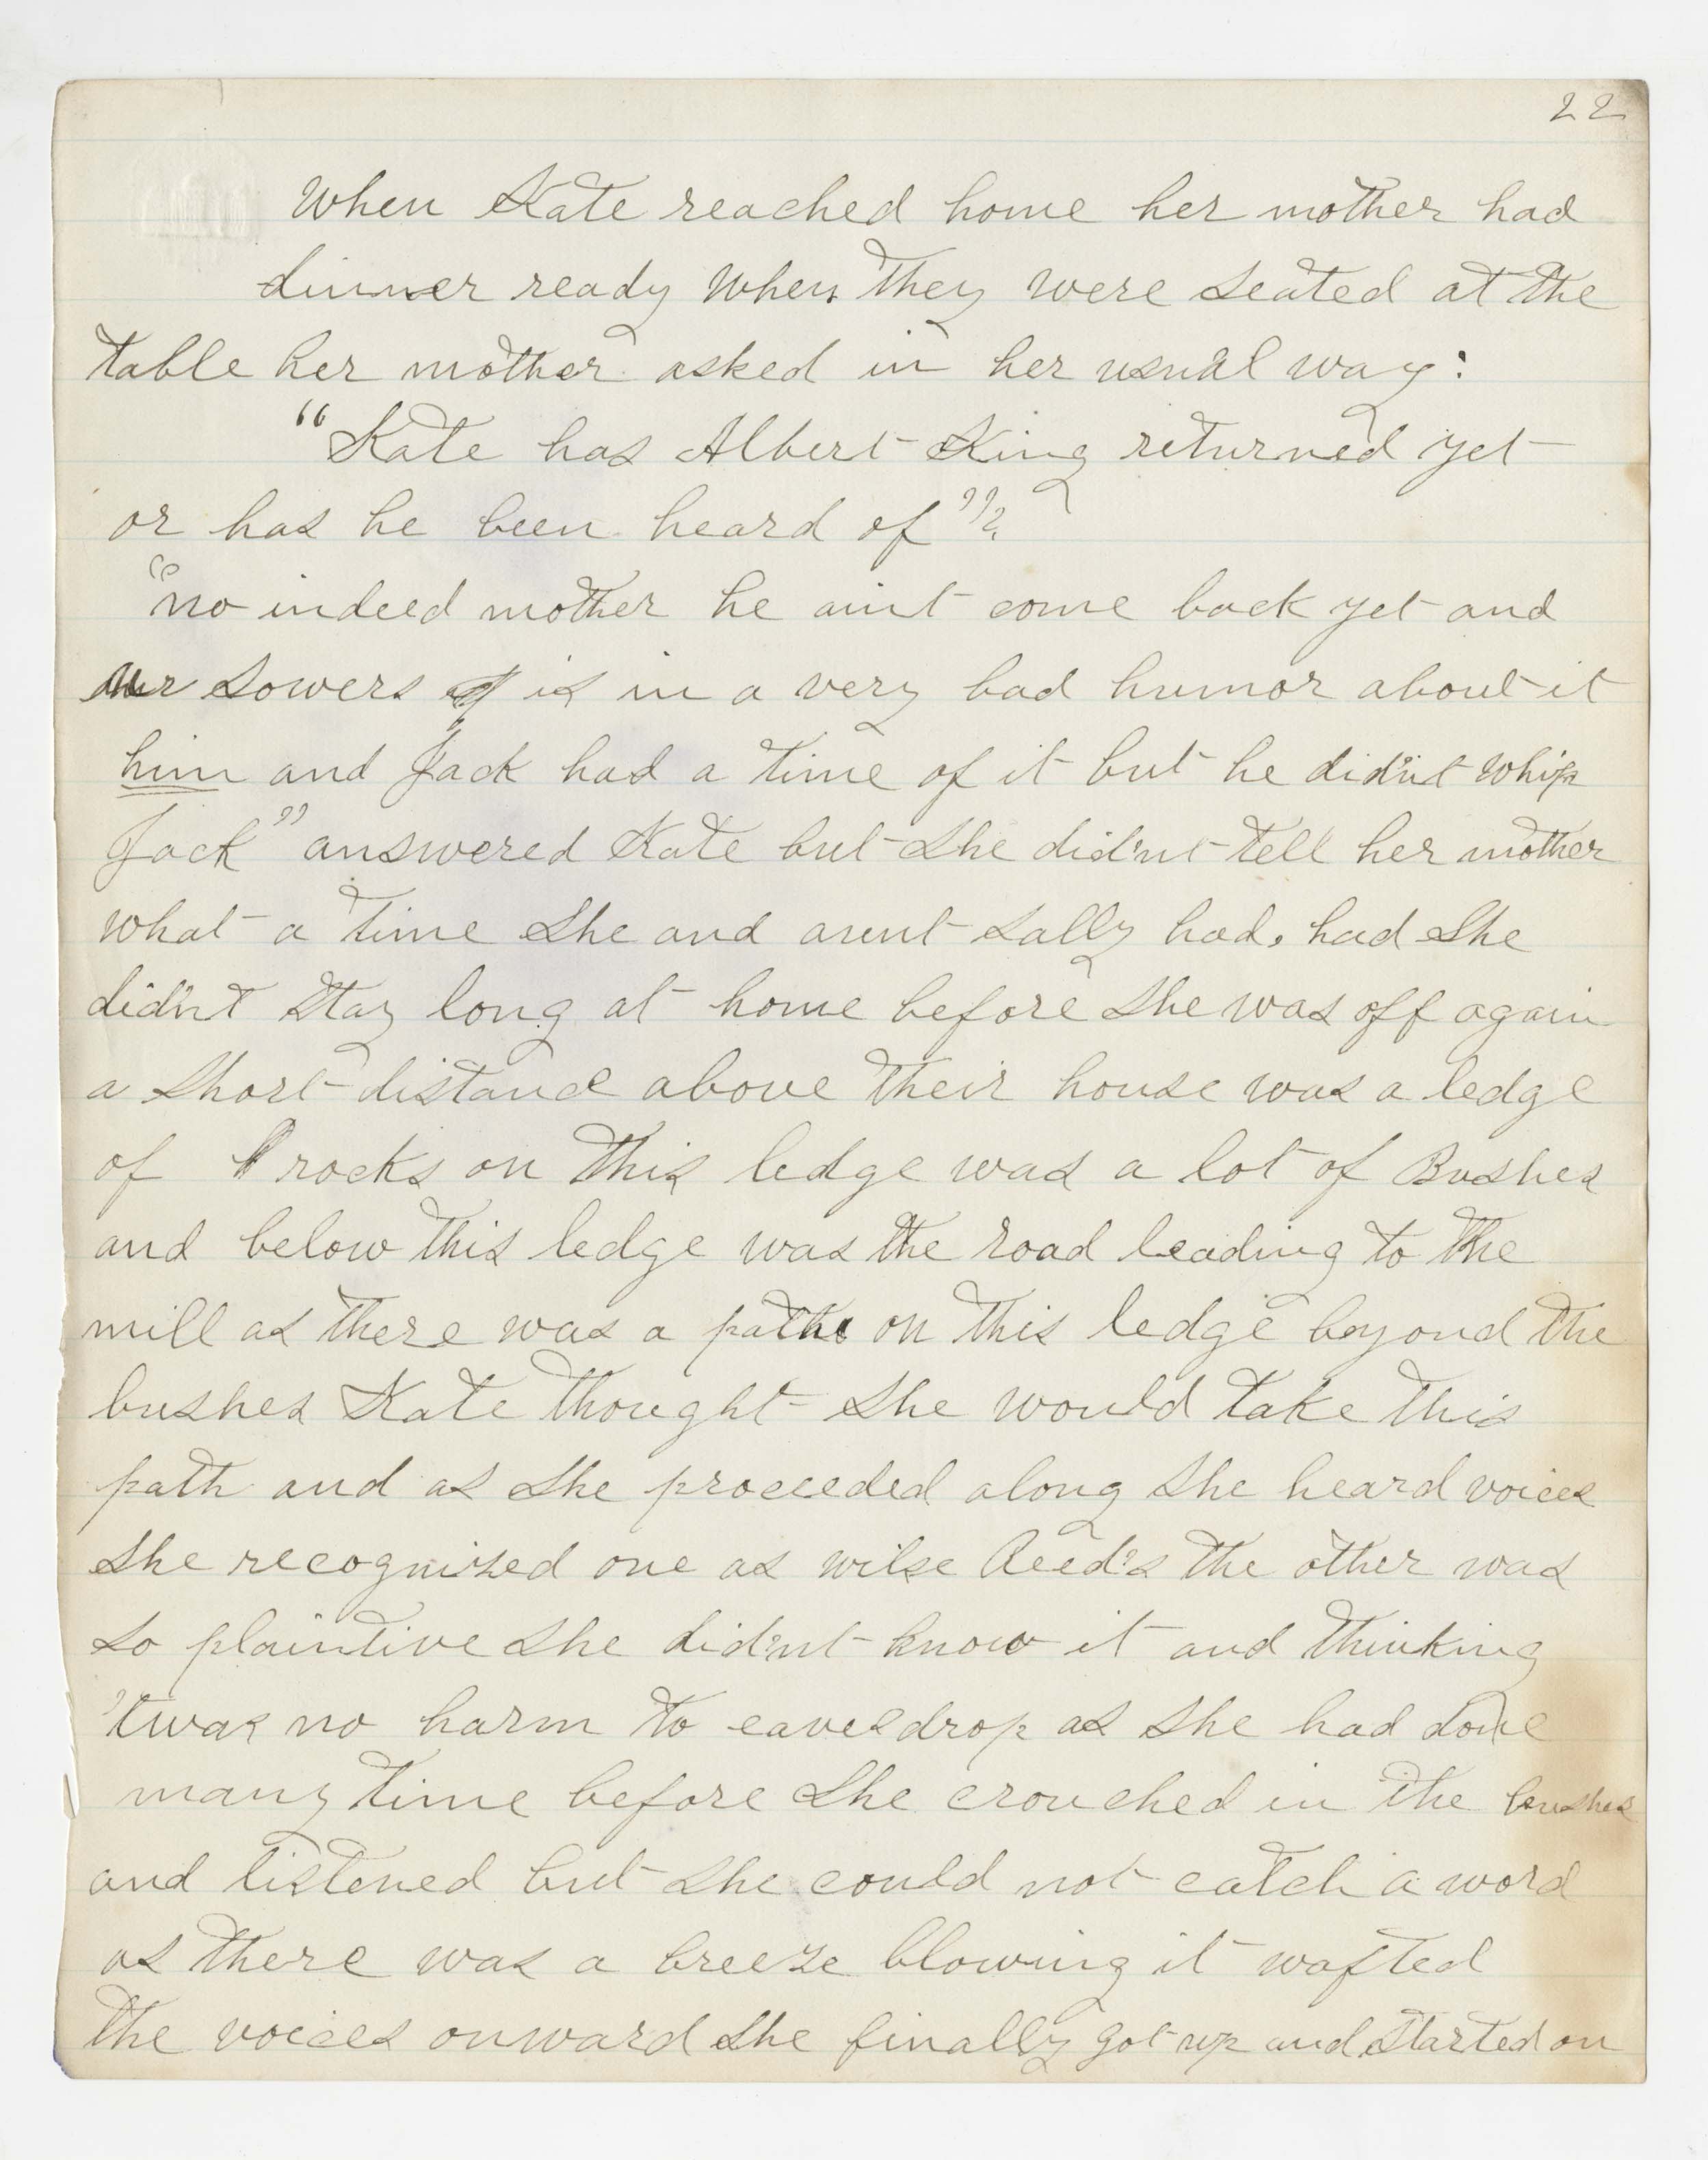 22
When Kate reached home her mother had
dinner ready when they were seated at the
table her mother asked in her usual way:
"Kate has Albert King returned yet
or has he been heard of"?
"no indeed mother he aint come back yet and
mr Sowers is in a very bad humor about it
him and Jack had a time of it but he did'nt whip
Jack" answered Kate but she did'nt tell her mother
what a time she and aunt Sally had, had she
did'nt stay long at home before she was off again
a short distance above their house was a ledge
of rocks on this ledge was a lot of Bushes
and below this ledge was the road leading to the
mill as there was a path on this ledge beyond the
bushes Kate thought she would take this
path and as she proceeded along she heard voices
she recognized one as wilse Reed's the other was
so plaintive she did'nt know it and thinking
'twas no harm to eavesdrop as she had done
many time before she crouched in the bushes
and listened but she could not catch a word
as there was a breeze blowing it wafted
the voices onward she finally got up and started on